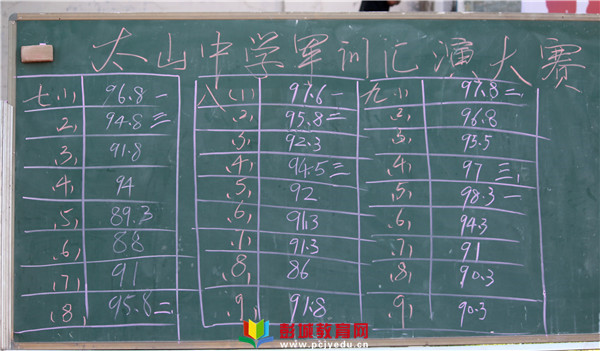 太山中学军训汇演大赛
七(1) 96.8 一 八(1) 97.6 一 九(1) 97.8 二
(2) 94.8 三 (2) 95.8 二 (2) 96.8
(3) 91.8 (3) 92.3 (3) 95.5
(4) 94 (4) 94.5 三 (4) 97 三
(5) 89.3 (5) 92 (5) 98.3 一
(6) 88 (6) 91.3 (6) 94.3
(7) 91 (7) 91.3 (7) 91
(8) 95.8 二 (8) 86 (8) 90.3
(9) 91.8 (9) 90.3
郫城教育网
www.pcjyedu.cn